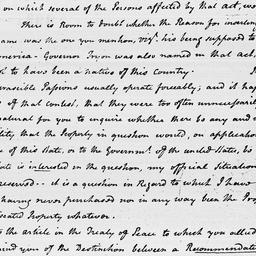 on which several of the Persons affected by that act, wo
There is Room to doubt whether the Reason for inserting
ame was the one you mention, vizt. his being supposed to
merica - Governor Tryon was also named in that act,
to have been a native of this Country.
Passions usually operate forceably; and it hap
of that contest, that they were too often unnecessarily
natural for you to enquire whether there be any and
lity that the Property in question would, on application
of this State, or to the Governmt. of the united State, be
tate is interested in the question, my official Situation
reserved - it is a question in Regard to which I have
having never purchased nor in any way been the Prop
iscated Property whatever.
to the article in the Treaty of Peace to which you allude
mind you of the Distinction between a Recommendatio